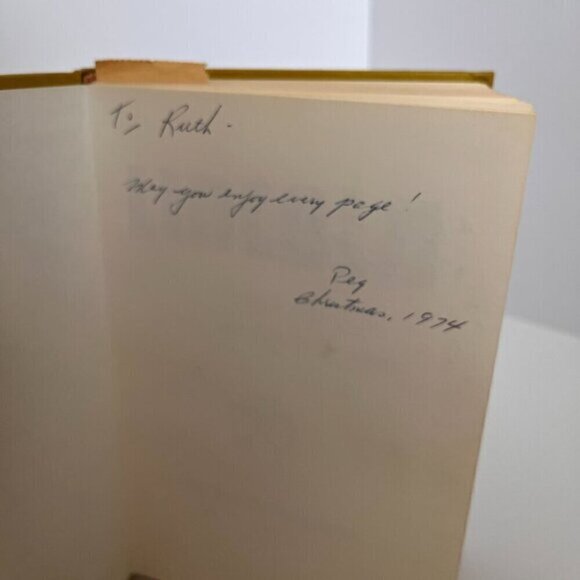 To Ruth -
May you enjoy every page!
Peg
Christmas, 1974